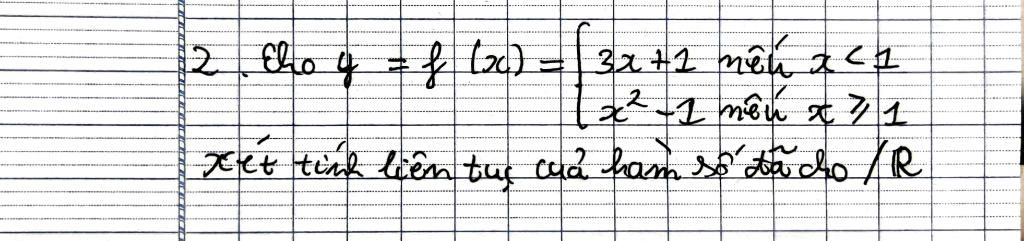 2. Cho y = f(x) = { 3x + 1 nếu x < 1
x² - 1 nếu x ⩾ 1
xét tính liên tục của hàm số đã cho /ℝ